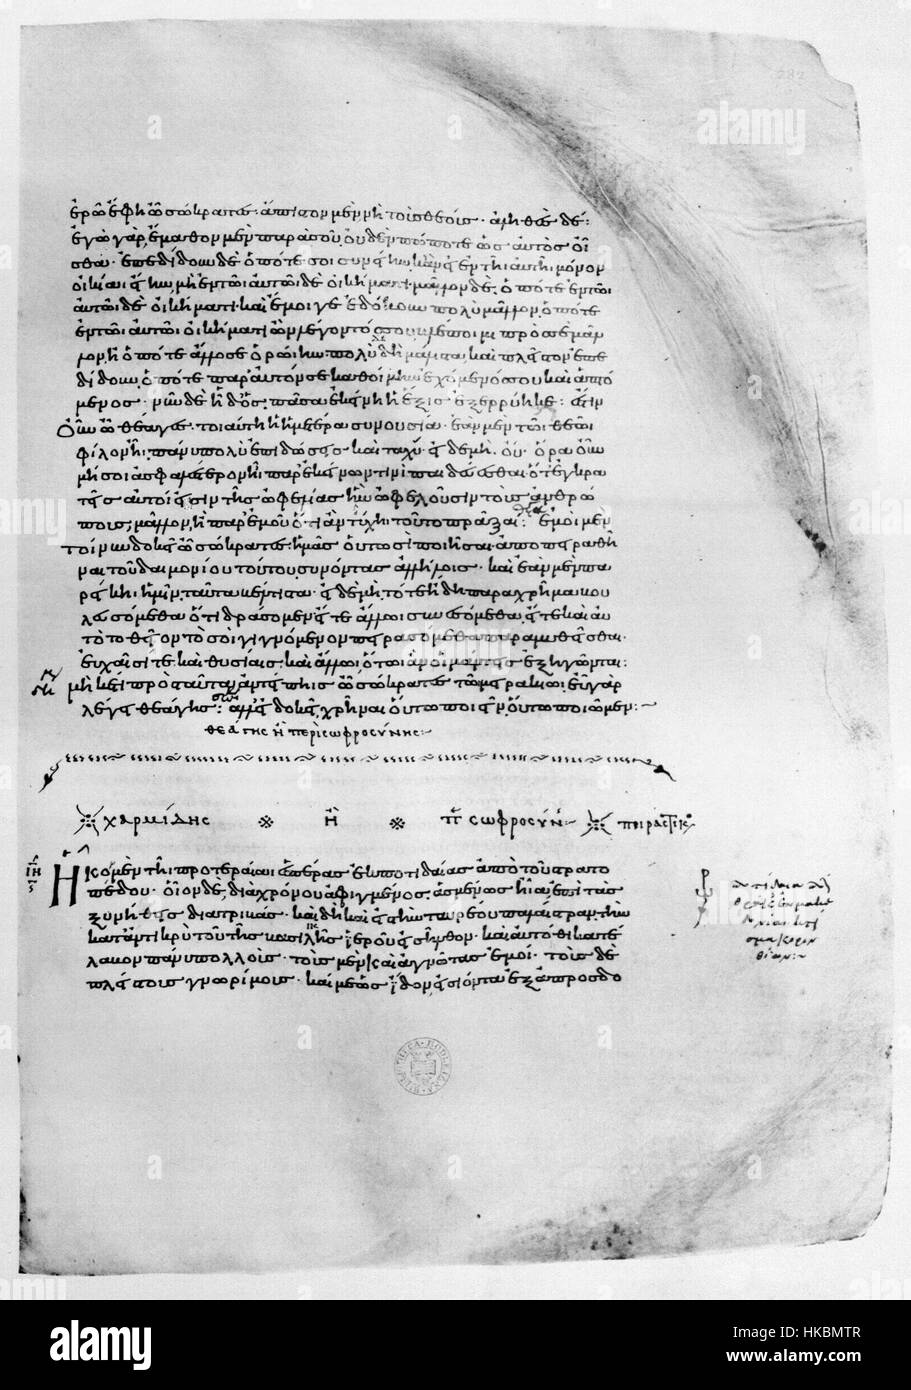 ἐρῶ ἔφη ὦ σώκρατες· ἄπιστον μὲν νὴ τοὺς θεούς· ἀληθὲς δέ:
ἐγὼ γὰρ, ἔμαθον μὲν παρὰ σοῦ, οὐδὲν πώποτε ὡς αὐτὸς οἶ
σθα· ἐπεδίδουν δὲ ὁπότε σοι συνείην κἂν εἰ ἐν τῆι αὐτῆι μόνον
οἰκίαι εἴην μὴ ἐν τῶι αὐτῶι δὲ οἰκήματι· μᾶλλον δὲ, ὁπότε ἐν τῶι
αὐτῶι δὲ οἰκήματι· καὶ ἔμοιγε ἐδόκουν πολὺ μᾶλλον, ὁπότε
ἐν τῶι αὐτῶι οἰκήματι ὢν λέγοντός σου βλέποιμι πρὸς σὲ μᾶλ
λον, ἢ ὁπότε ἄλλοσε ὁρώιην πολὺ δὲ μάλιστα, καὶ πλεῖστον ἐπε
δίδουν, ὁπότε παρ' αὐτόν σε καθοίμην ἐχόμενός σου καὶ ἁπτό
μενος· νῦν δὲ ἦ δ' ὃς, πᾶσα ἐκείνη ἡ ἕξις ἐξερρύηκε: ἔστιν
οὖν ὦ θέαγες· τοιαύτη ἡ ἡμετέρα συνουσία· ἐὰν μὲν τῶι θεῶι
φίλον ἦι, πάνυ πολὺ ἐπιδώσεις καὶ ταχύ, εἰ δὲ μὴ, οὔ· ὅρα οὖν
μή σοι ἀσφαλέστερον ἦι, παρ' ἐκείνων τινὶ παιδεύεσθαι οἳ ἐγκρα
τεῖς αὐτοί εἰσιν τῆς ὠφελίας ἣν ὠφελοῦσιν τοὺς ἀνθρώ
πους, μᾶλλον, ἢ παρ' ἐμοῦ ὅτι ἂν τύχηι τοῦτο πρᾶξαι: ἐμοὶ μὲν
τοίνυν δοκεῖ ὦ σώκρατες· ἡμᾶς οὑτωσὶ ποιῆσαι· ἀποπειραθῆ
ναι τοῦ δαιμονίου τούτου συνόντας ἀλλήλοις· καὶ ἐὰν μὲν πα
ρείκηι ἡμῖν, ταῦτα βέλτιστα· εἰ δὲ μὴ, τότε ἤδη παραχρῆμα βου
λευσόμεθα ὅτι δράσομεν εἴτε ἄλλωι συνεσόμεθα, εἴτε καὶ αὐ
τὸ τὸ θεῖον τὸ σοὶ γιγνόμενον πειρασόμεθα παραμυθεῖσθαι·
εὐχαῖσί τε καὶ θυσίαις· καὶ ἄλλωι, ὅτωι ἂν οἱ μάντεις ἐξηγῶνται:
μηκέτι πρὸς ταῦτα ἀντείπηις ὦ σώκρατες τῶι μειρακίωι· εὖ γὰρ
λέγει θεάγης: ἀλλ' εἰ δοκεῖ, χρῆναι οὕτω ποιεῖν, οὕτω ποιῶμεν:
θεάγης ἢ περὶ σωφροσύνης:
χαρμίδης ἢ π σωφροσύν πειραστικός
Ἥκομεν τῆι προτεραίαι ἑσπέρας ἐκ ποτιδαίας ἀπὸ τοῦ στρατο
πέδου· οἷον δὲ, διὰ χρόνου ἀφιγμένος, ἀσμένως ἦια ἐπὶ τὰς
ξυνήθεις διατριβάς· καὶ δὴ καὶ εἰς τὴν ταυρέου παλαίστραν τὴν
καταντικρὺ τοῦ τῆς βασιλικῆς ἱεροῦ εἰσῆλθον· καὶ αὐτόθι κατέ
λαβον πάνυ πολλοὺς· τοὺς μὲν, καὶ ἀγνῶτας ἐμοί· τοὺς δὲ
πλείστους γνωρίμους· καί με ὡς εἶδον εἰσιόντα ἐξ ἀπροσδο
alamy
Image ID: HKBMTR
www.alamy.com